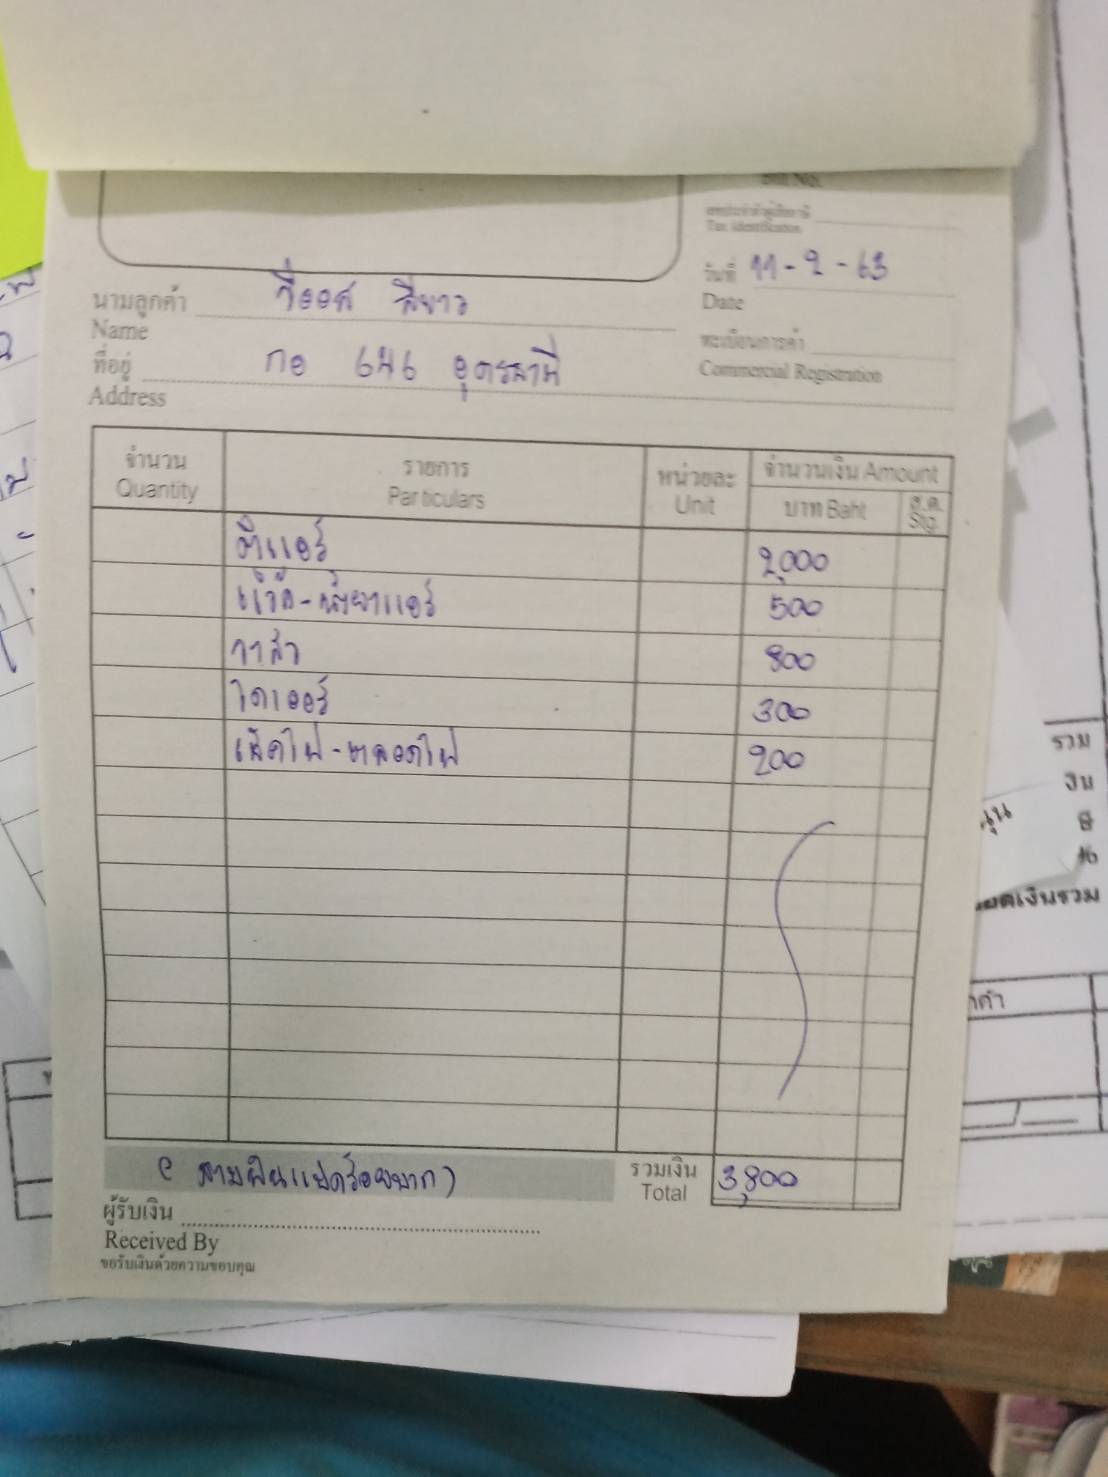 Bill No.
เลขประจำตัวผู้เสียภาษี
Tax Identification
วันที่ 11-2-63
Date
นามลูกค้า วีออส สีขาว
Name
ทะเบียนการค้า
Commercial Registration
ที่อยู่ กอ 646 อุดรธานี
Address
จำนวน รายการ หน่วยละ จำนวนเงิน Amount
Quantity Particulars Unit บาท Baht ส.ต. Stg.
ตู้แอร์ 2,000
500
วาล์ว 800
ไดเออร์ 300
เช็คไฟ-หลอดไฟ 200
(สามพันแปดร้อยบาท) รวมเงิน 3,800
Total
ผู้รับเงิน
Received By
ขอรับเงินด้วยความขอบคุณ
รวม
เงิน
ยอดเงินรวม